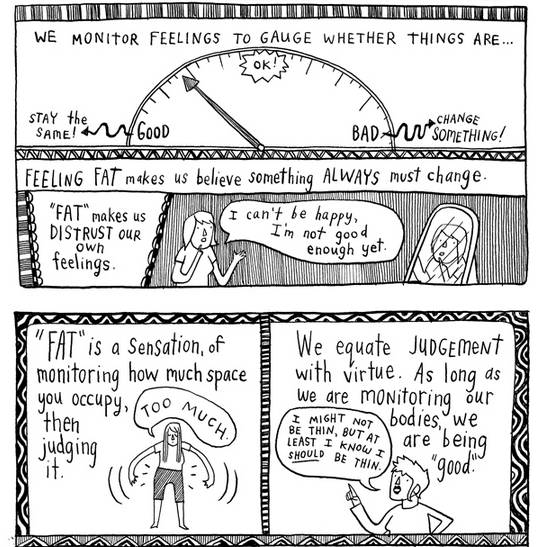 WE MONITOR FEELINGS TO GAUGE WHETHER THINGS ARE...
OK!
STAY the
SAME!
GOOD
BAD
CHANGE
SOMETHING!
FEELING FAT makes us believe something ALWAYS must change.
"FAT" makes us
DISTRUST OUR
own
feelings.
I can't be happy,
I'm not good
enough yet.
"FAT" is a sensation, of
monitoring how much space
you occupy,
then
judging
it.
TOO MUCH.
We equate JUDGEMENT
with virtue. As long as
we are monitoring our
bodies, we
are being
"good."
I MIGHT NOT
BE THIN, BUT AT
LEAST I KNOW I
SHOULD BE THIN.